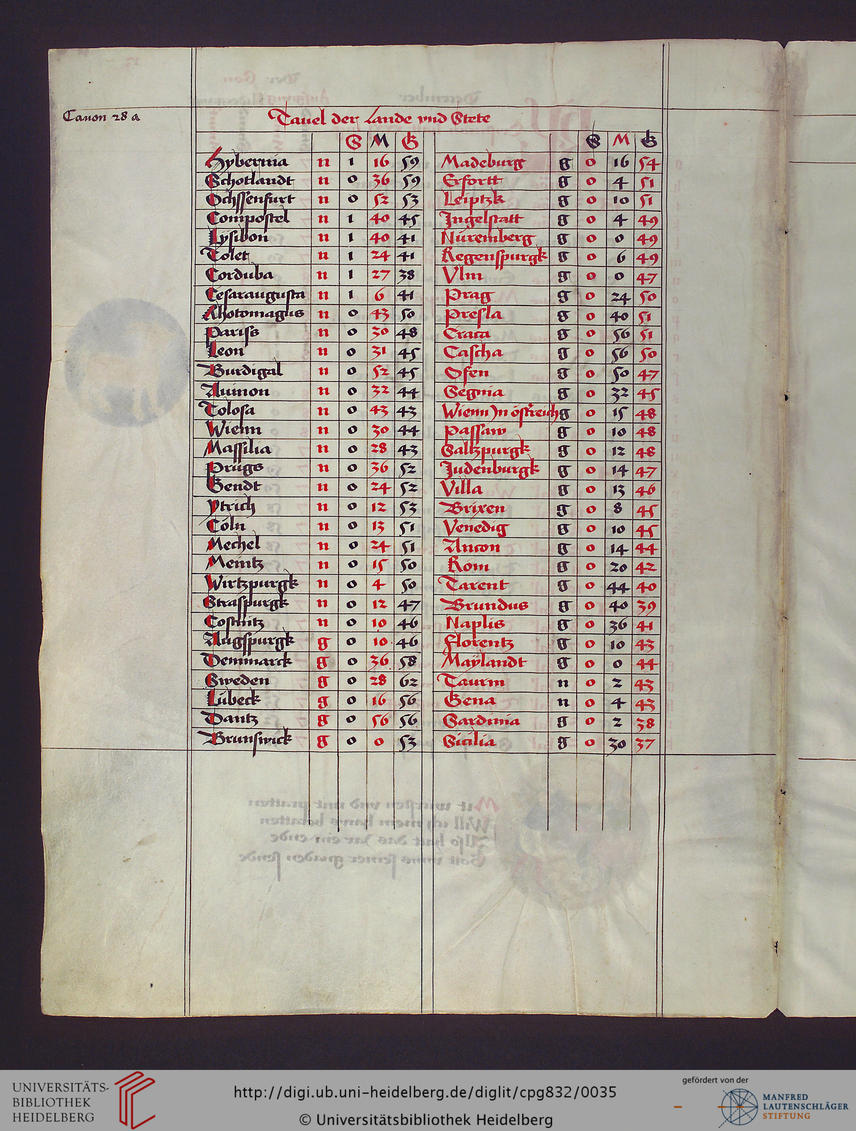 Canon 28 a
Tauel der Lande vnd Stete
S M G
Hybernia n 1 16 59
Schotlandt n 0 36 59
Ochssenfurt n 0 52 53
Compostel n 1 40 45
Lysibon n 1 40 41
Tolet n 1 24 41
Corduba n 1 27 38
Cesaraugusta n 1 6 41
Rhotomagus n 0 43 50
Pariss n 0 30 48
Leon n 0 31 45
Burdigal n 0 52 45
Auinon n 0 32 44
Tolosa n 0 43 43
Wienn n 0 30 44
Massilia n 0 28 43
Prugs n 0 36 52
Gendt n 0 24 52
Ytrich n 0 12 53
Cöln n 0 13 51
Mechel n 0 24 51
Meintz n 0 15 50
Wirtzpurgk n 0 4 50
Straspurgk n 0 12 47
Costnitz n 0 10 46
Augspurgk g 0 10 46
Denmarck g 0 36 58
Sweden g 0 28 62
Lübeck g 0 16 56
Dantz g 0 56 56
Brunswick g 0 0 53
S M G
Madeburg g 0 16 54
Erfortt g 0 4 51
Leiptzk g 0 10 51
Ingelstatt g 0 4 49
Nüremberg g 0 0 49
Regenspurgk g 0 6 49
Vlm g 0 0 47
Prag g 0 24 50
Presla g 0 40 51
Craca g 0 56 51
Cascha g 0 56 50
Ofen g 0 50 47
Segnia g 0 32 45
Wienn In östreich g 0 15 48
Passaw g 0 10 48
Saltzpurgk g 0 12 48
Judenburgk g 0 14 47
Villa g 0 13 46
Brixen g 0 8 45
Venedig g 0 10 45
Ancon g 0 14 44
Rom g 0 20 42
Tarent g 0 44 40
Brundus g 0 40 39
Naplis g 0 36 41
Florentz g 0 10 43
Maÿlandt g 0 0 44
Taurin n 0 2 43
Gena n 0 4 43
Sardinia g 0 2 38
Sicilia g 0 30 37
UNIVERSITÄTS-
BIBLIOTHEK
HEIDELBERG
http://digi.ub.uni-heidelberg.de/diglit/cpg832/0035
© Universitätsbibliothek Heidelberg
gefördert von der
MANFRED
LAUTENSCHLÄGER
STIFTUNG